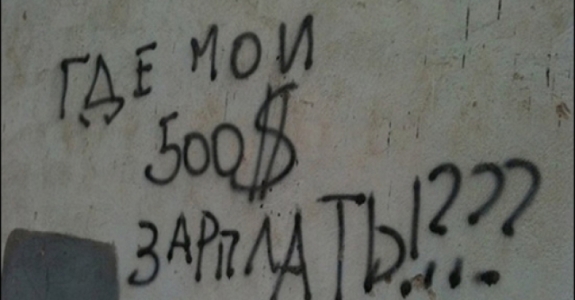 ГДЕ МОИ
500$
ЗАРПЛАТЫ???...